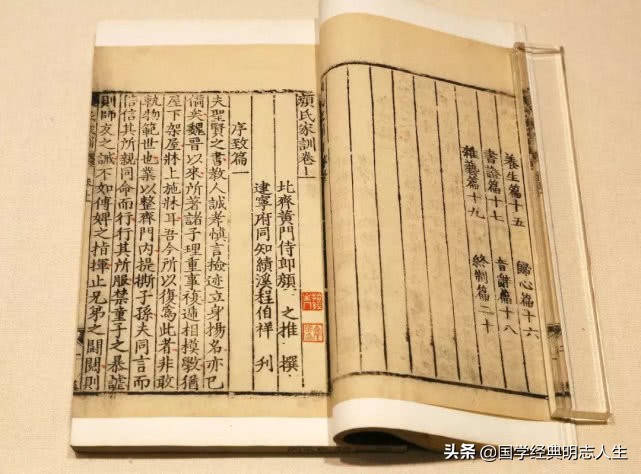 養生篇十五 歸心篇十六
書證篇十七 音辭篇十八
雜藝篇十九 終制篇二十
顏氏家訓卷上
北齊黃門侍郎顏 之推 撰
建寧府同知績溪程伯祥 刊
序致篇一
夫聖賢之書教人誠孝慎言檢迹立身揚名亦已
備矣魏晉以來所著諸子理重事複遞相模斆猶
屋下架屋牀上施牀耳吾今所以復爲此者非敢
軌物範世也業以整齊門內提撕子孫夫同言而
信信其所親同命而行行其所服禁童子之暴謔
則師友之誡不如傅婢之指揮止兄弟之鬪鬩則
头条 @国学经典明志人生